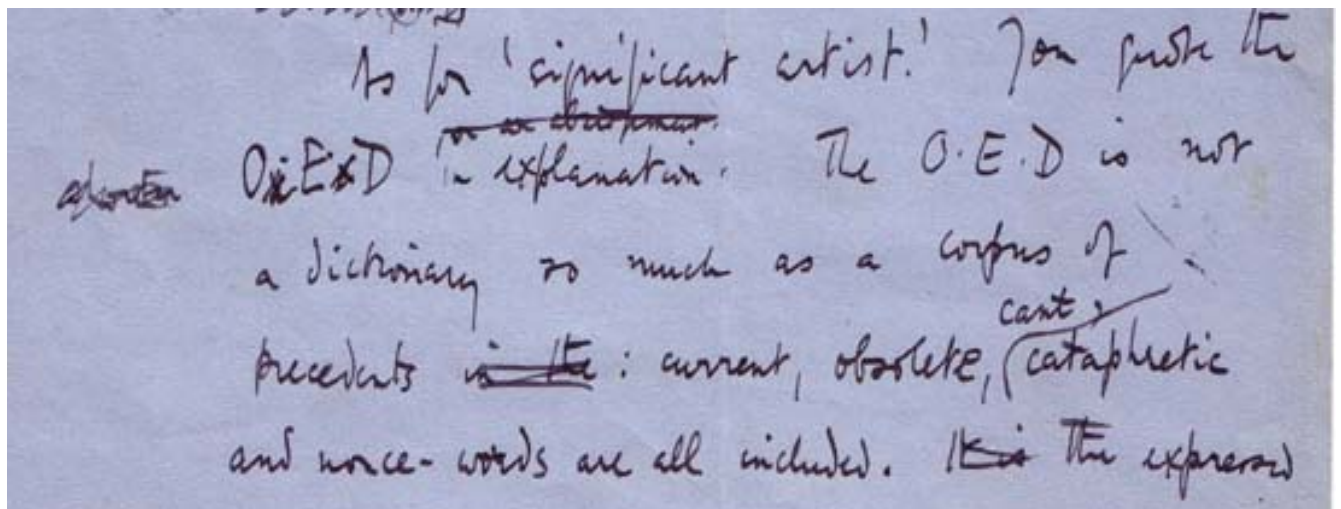 As for 'significant artist.' You quote the
O.E.D in explanation. The O.E.D is not
a dictionary so much as a corpus of
cant,
precedents in the : current, obsolete, cataphretic
and nonce-words are all included. It is The expressed